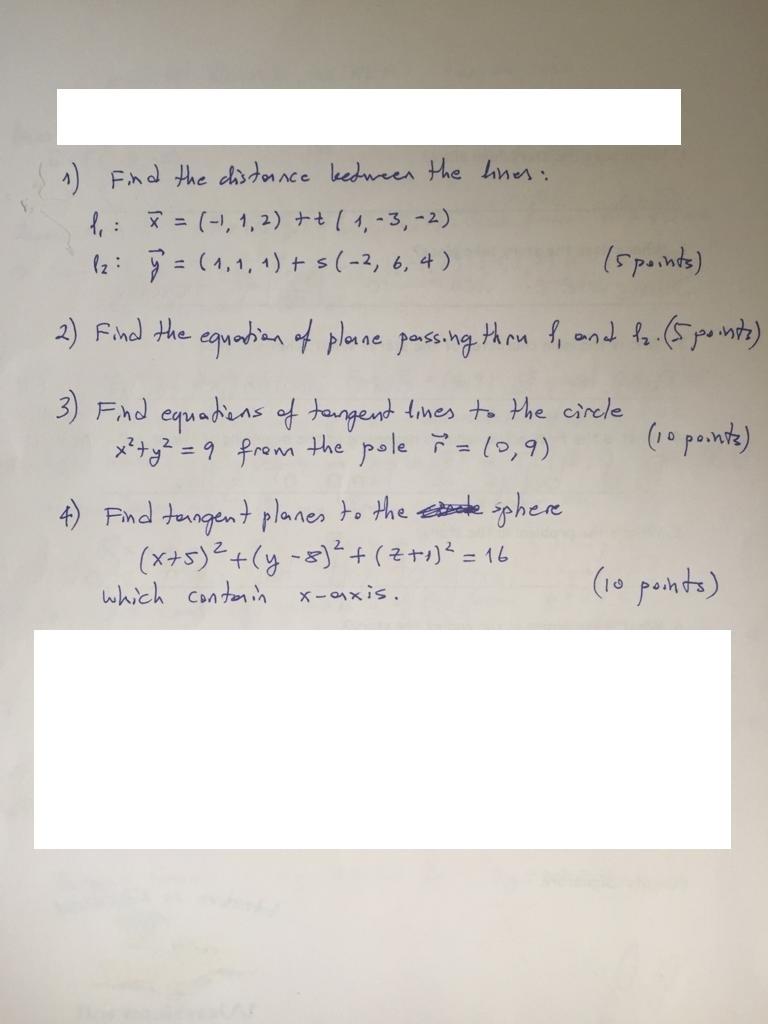 1) Find the distance between the lines:
l₁: x⃗ = (-1, 1, 2) + t( 1, -3, -2)
l₂: y⃗ = (1, 1, 1) + s(-2, 6, 4) (5 points)
2) Find the equation of plane passing thru l₁ and l₂. (5 points)
3) Find equations of tangent lines to the circle
x²+y² = 9 from the pole r⃗ = (0, 9) (10 points)
4) Find tangent planes to the sphere
(x+5)² + (y - 8)² + (z+1)² = 16
which contain x-axis. (10 points)